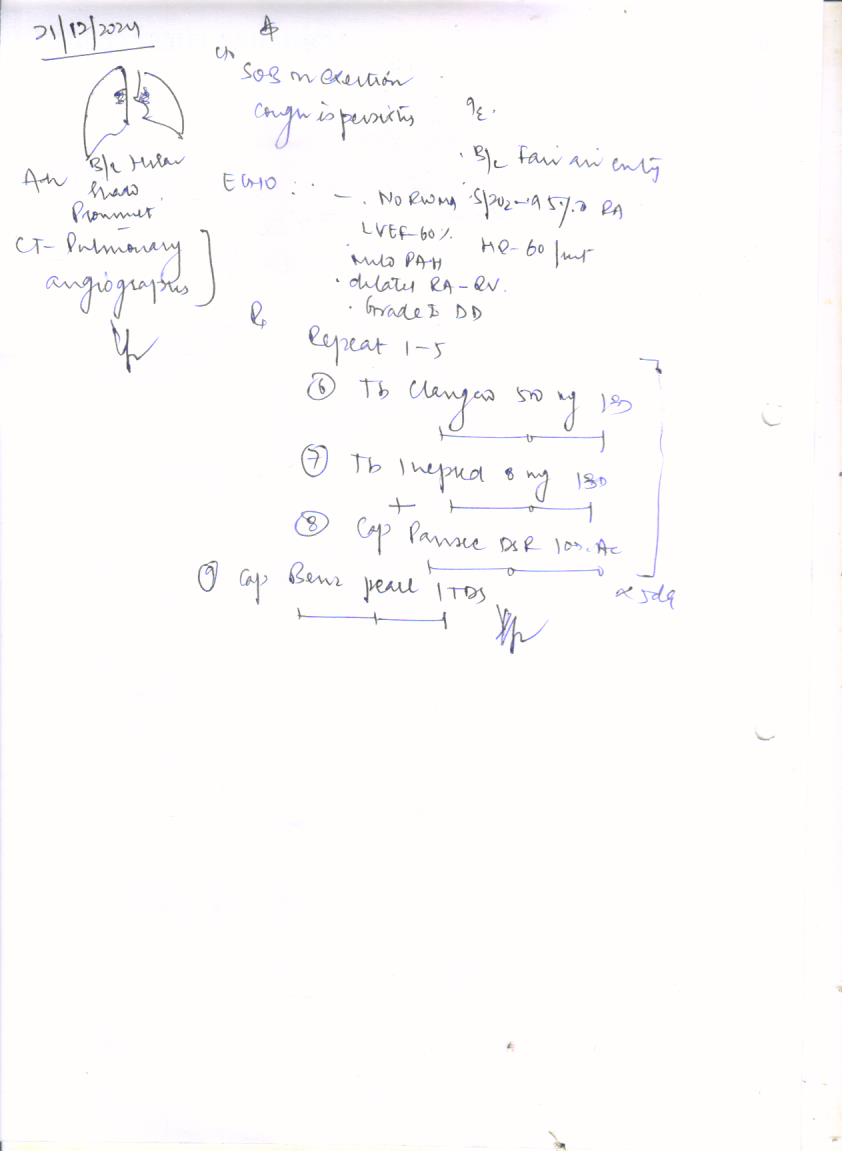 21/12/2024
C/o
SOB on exertion
cough is persists
O/E.
. B/L Fair air entry
Adv
B/L Hilar
Shadow
Prominent
ECHO : -
. NO RWMA
SpO2-95% @ RA
LVEF-60%
HR-60/mt
Mild PAH
CT-Pulmonary
angiography
. dilated RA-RV.
. Grade I DD
Rx
Repeat 1-5
6 Tb 500 mg 1BD
7 Tb 8 mg 1BD
+
8 Cap Pansec DSR 1OD. AC
9 Cap Benz pearl 1TDS
x 5da